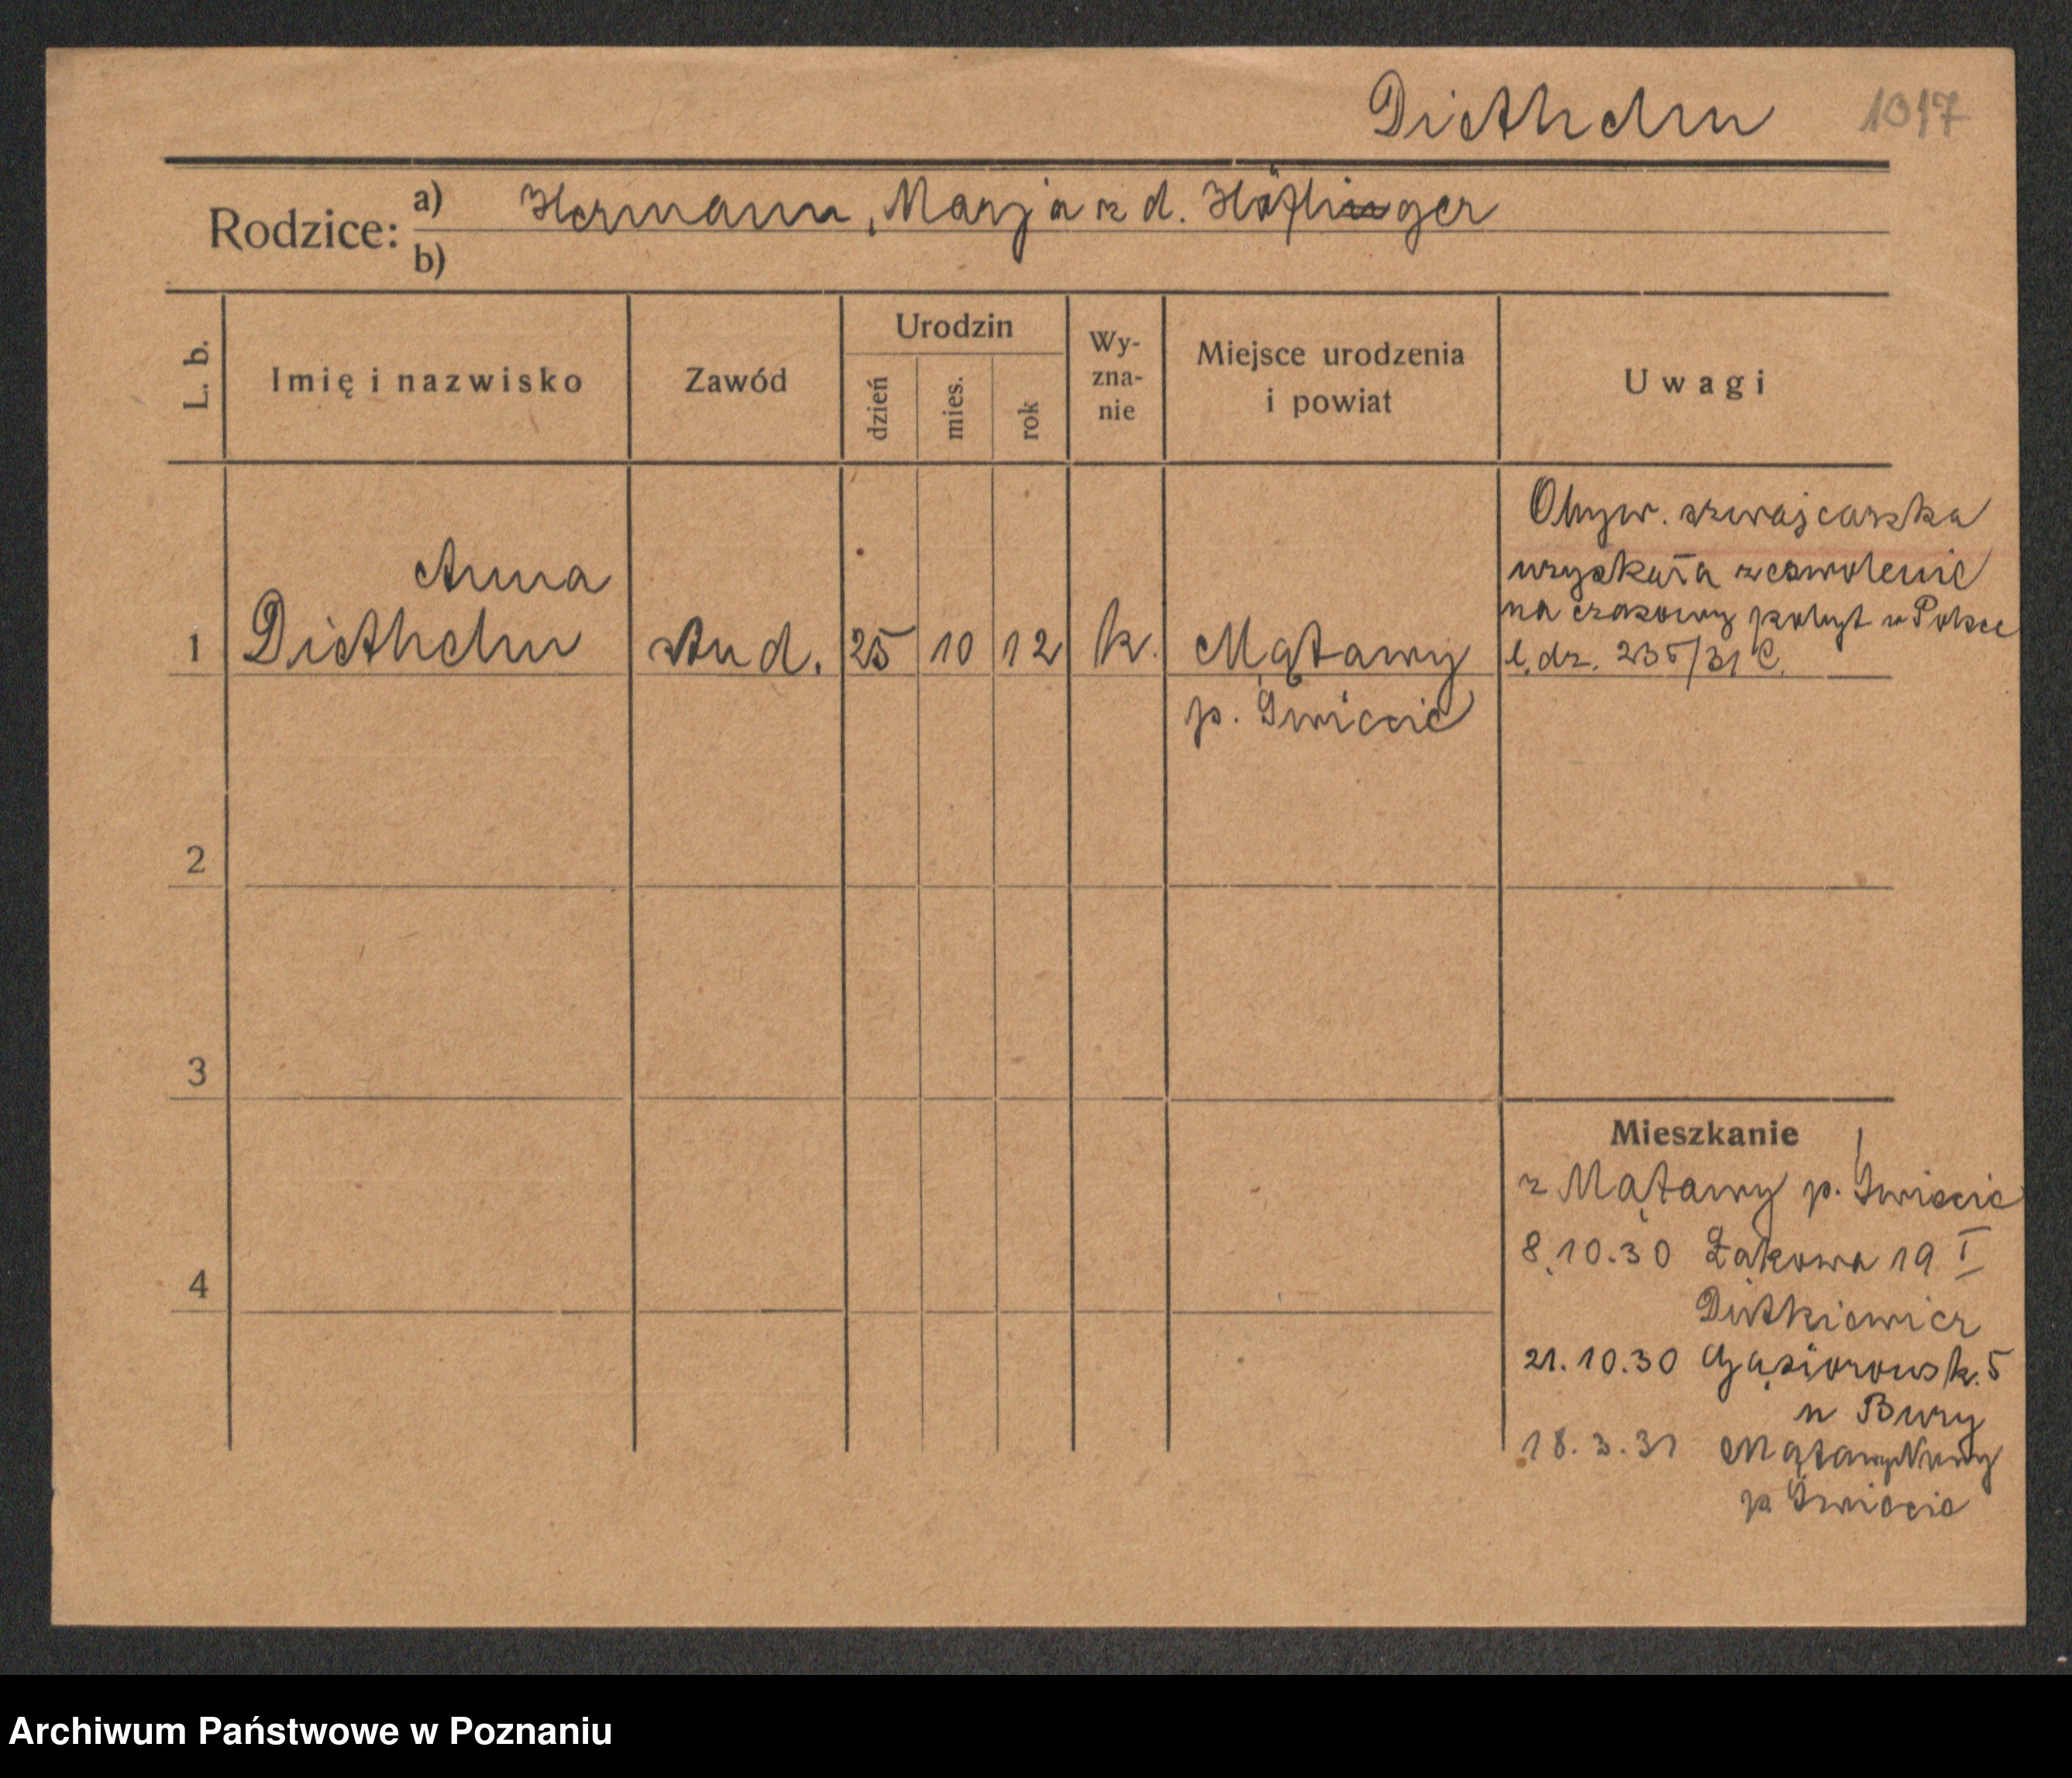 Diethelm 1017
Rodzice: a) Hermann, Marja z d. Höflinger
b)
L. b. Imię i nazwisko Zawód Urodzin dzień mies. rok Wy-
zna-
nie Miejsce urodzenia
i powiat Uwagi
Obyw. szwajcarska
uzyskała zezwolenie
na czasowy pobyt w Polsce
l. dz. 235/31 C.
Anna
1 Diethelm stud. 25 10 12 k. Mątawy
p. Świecie
2
3
4
Mieszkanie
z Mątawy p. Świecie
8.10.30 Łąkowa 19 I
Dutkiewicz
21.10.30 Gąsiorowsk. 5
u Bury
18.3.31 Mątawy
p Świecie
Archiwum Państwowe w Poznaniu